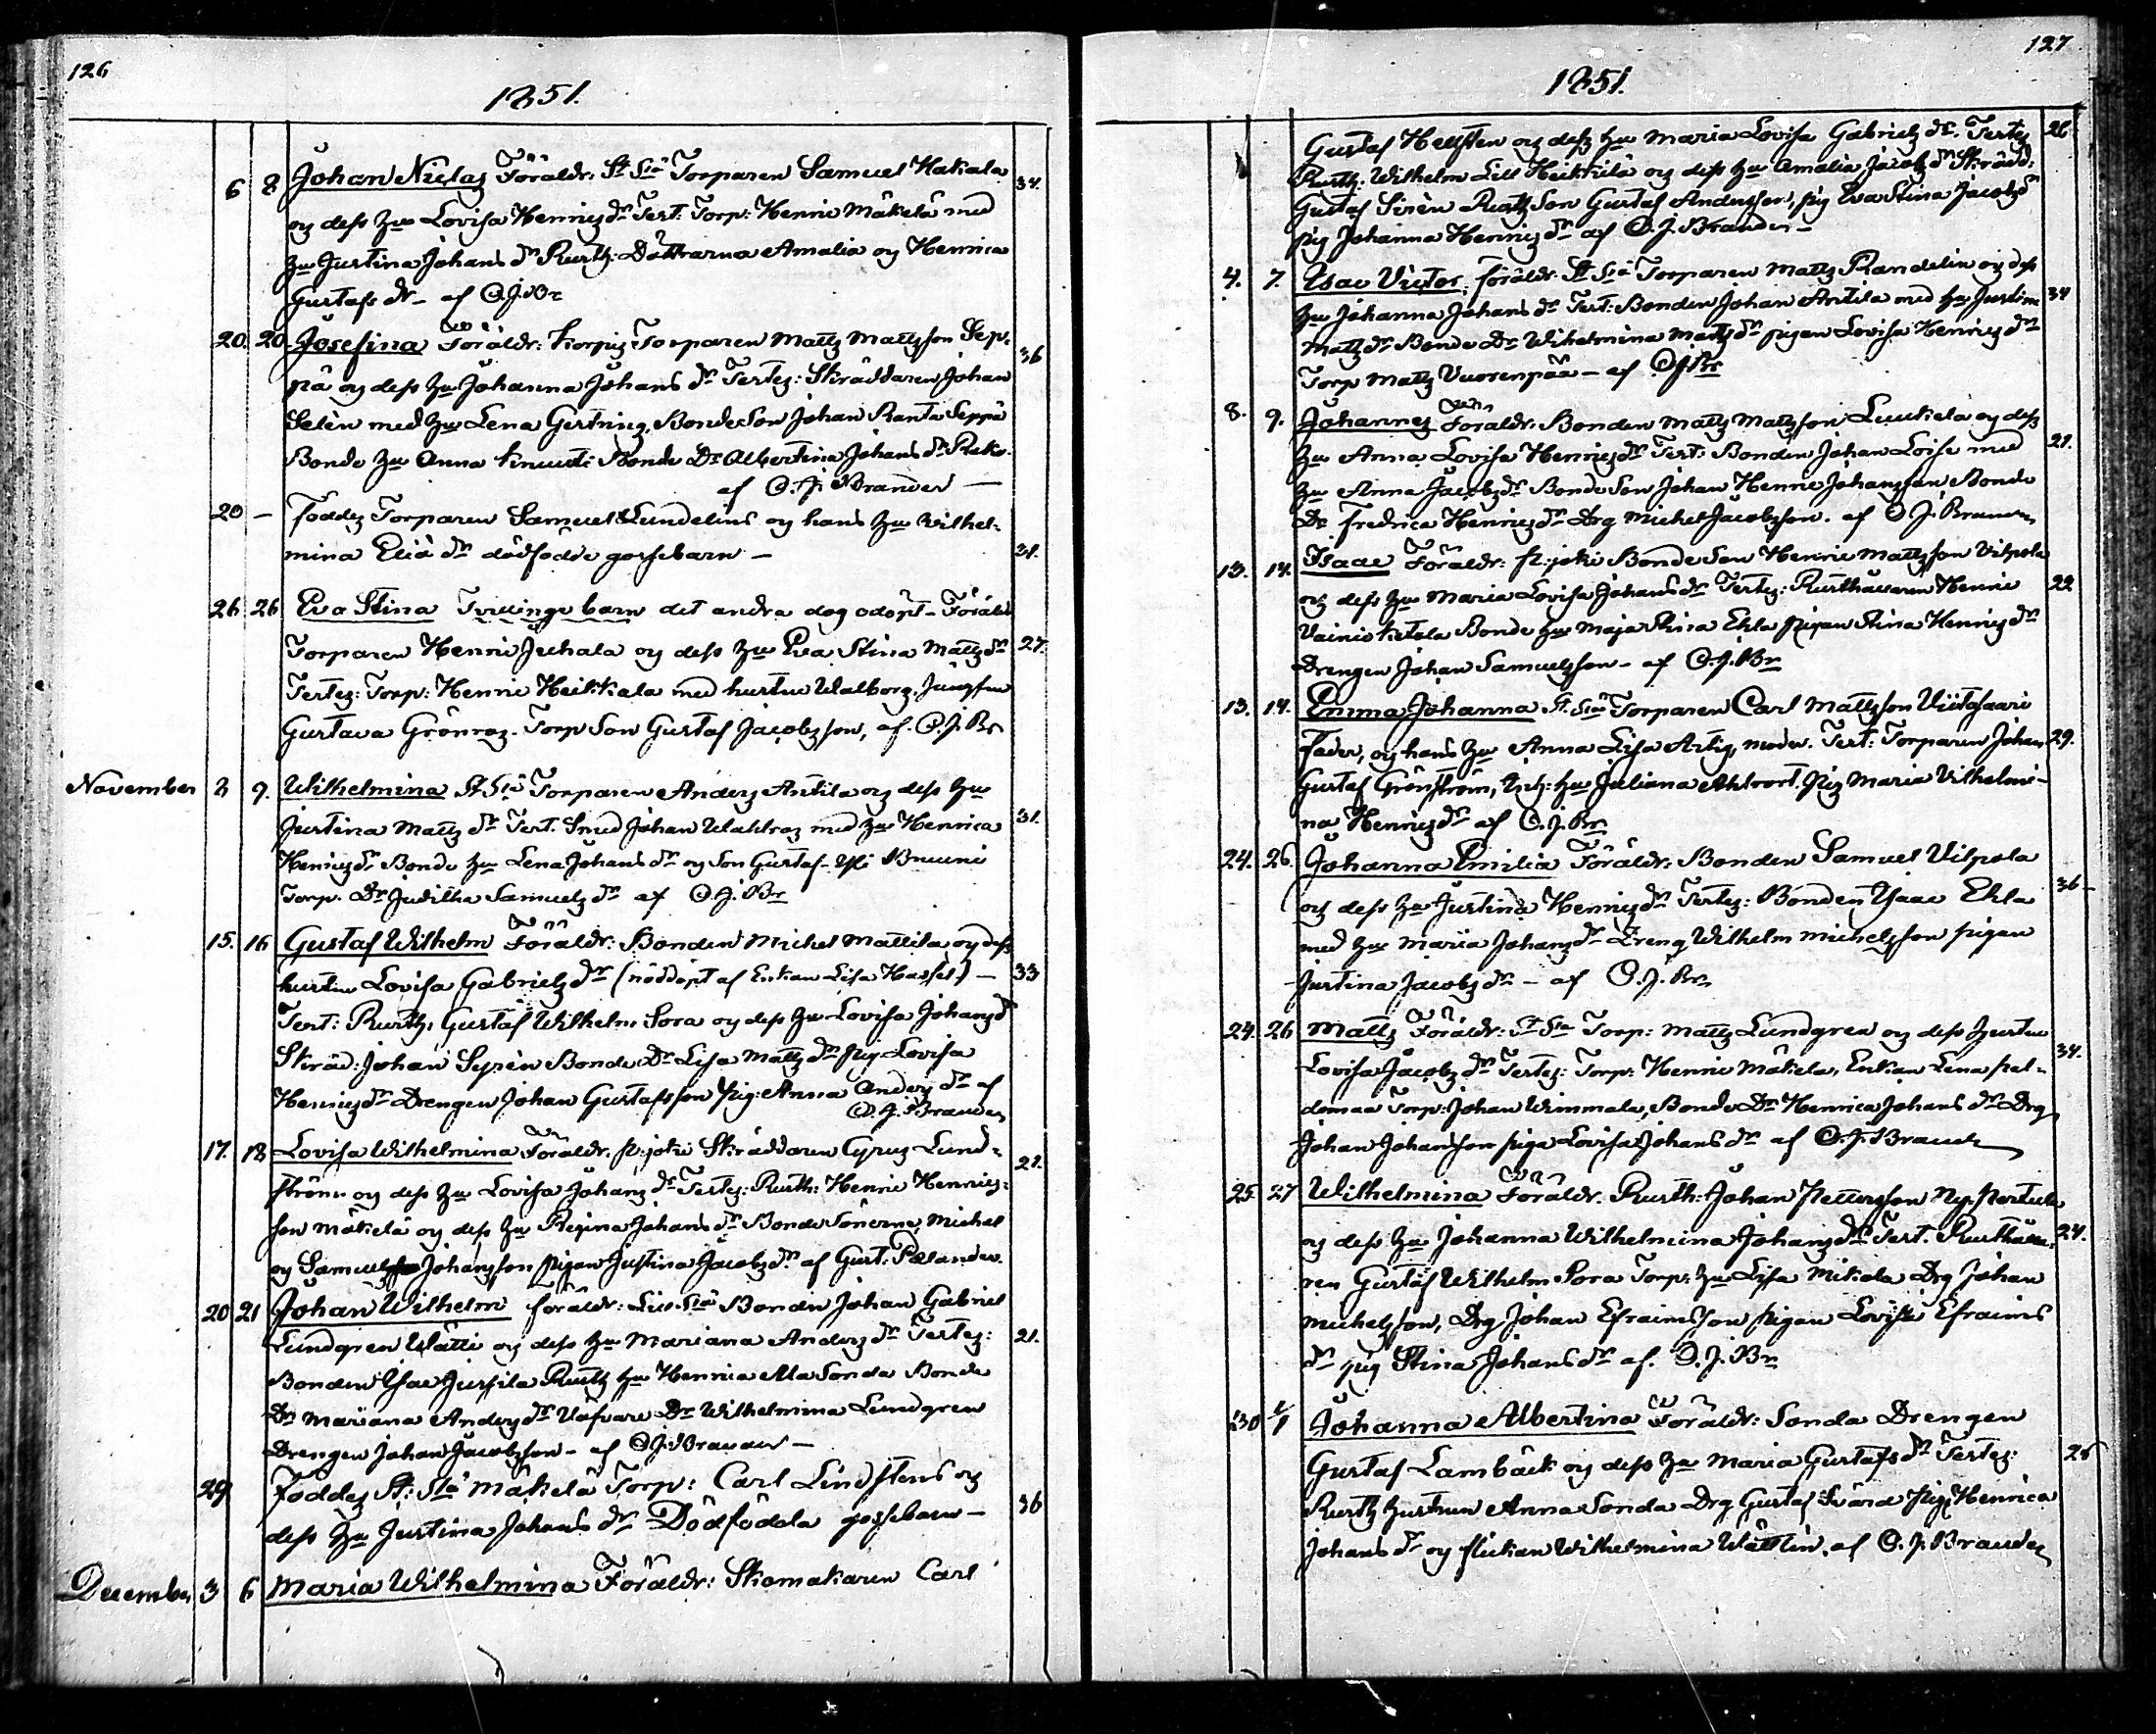 126
1851.
6 8 Johan Niclas Föräldr: St Stå Torparen Samuel Hakala 34.
og dess hu Lovisa Henricsdr Test: Torp: Henric Mäkelä med
hu Justina Johans dr Rusth: Döttrarna Amalia og Henrica
Gustafs dr – af C.J.Br
20. 20. Josefina Föräldr: Torparen Matts Mattsson Sep- 36
pä og dess hu Johanna Johans dr Testes: Skräddaren Johan
Selèn med hu Lena Bonde Son Johan Ranta Seppä
Bonde hu Anna Bonde Dr Albertina Johans dr
af C.J. Brander –
20 – Föddes Torparen Samuel Lundelins og hans hu Wilhel-
mina Eliæ dr dödfödde gossebarn – 31.
26 26 Eva Stina Tvillinge barn det andra dog odöpt – Föräld
Torparen Henric Juhala og dess hu Eva Stina Matts dr 27.
Testes: Torp: Henric Heikkala med hustru Walborg, Jungfru
Gustava Grönroz. Torp Son Gustaf Jacobsson, af C.J. Br
November 8 9. Wilhelmina St Stå Torparen Anders Antila og dess hu
Justina Matts dr Test. Smed Johan Wahlroz med hu Henrica 31.
Henricsdr Bonde hu Lena Johans dr og Son Gustaf Yli
Torp. Dr Juditha Samuels dr af C.J. Br
15. 16 Gustaf Wilhelm Föräldr: Bonden Michel Mattila og dess
hustru Lovisa Gabriels dr (nöddöpt af Enkan Lisa Hassel) – 33
Test: Rusth. Gustaf Wilhelm Sora og dess hu Lovisa Johans d
Skräd: Johan Syrèn Bonde Dr Lisa Matts dr Pig Lovisa
Henricsdr Drengen Johan Gustafsson Pig: Anna Anders dr af
C.J. Brander
17. 18 Lovisa Wilhelmina Föräldr. joki Skräddaren Cyrus Lund-
ström og dess hu Lovisa Johans dr Testes: Rusth: Henric Henrics- 21.
son Mäkelä og dess hu Regina Johans dr Bonde Sönerne Michel
og Samuel Johansson pigan Justina Jacobsdr af Gust: Polander.
20 21 Johan Wilhelm föräldr: Lill Stå Bonden Johan Gabriel
Lundgren Wätti og dess hu Mariana Anders dr Testes: 21.
Bonden Isac Jussila Rusth hu Henrica Ala Sonda Bonde
Dr Mariana Anders dr Väfvare Dr Wilhelmina Lundgren
Drengen Johan Jacobsson – af C.J. Brander –
29 Föddes St: Stå Mäkelä Torp: Carl Lindstens og
dess hu Justina Johans dr Dödfödda gossebarn – 36
December 3 6 Maria Wilhelmina Föräldr: Skomakaren Carl
127
1851.
Gustaf Hellsten og dess hu Maria Lovisa Gabriels dr. Testes 26
Rusth: Wilhelm Lill Heikkilä og dess hu Amalia Jacobs dr Skrädd:
Gustaf Sirèn Rusth Son Gustaf Andersson, pig Eva Stina Jacobsdr
pig Johanna Henrics dr af C.J. Brander –
4. 7. Isac Victor, föräldr: St Stå Torparen Matts Randelin og dess
hu Johanna Johans dr Test: Bonden Johan Antila med hu Justina 34
Matts dr Bonde Dr Wilhelmina Matts dr pigan Lovisa Henrics dr
Torp Matts Vuorenpää – af CJBr
8. 9. Johannes Föräldr. Bonden Matts Mattsson Luukela og dess
hu Anna Lovisa Henricsdr Test: Bonden Johan Loise med 21.
hu Anna Jacobsdr Bonde Son Johan Henric Johansson Bonde
Dr Fredrica Henricsdr Drg Michel Jacobsson. af C J. Brander
13. 14. Isaac Föräldr: joki Bonde Son Henric Mattsson Vilpola
og dess hu Maria Lovisa Johans dr Testes: Rusthållaren Henric 22
Vainio Ketola Bonde hu Maja Stina Ekla pigan Stina Henrics dr
Drengen Johan Samuelsson – af C.J. Br
13. 14. Emma Johanna St. Stå Torparen Carl Mattsson Viitasaari
fader, og hans hu Anna Lisa Artig, moder. Test: Torparen Johan 29.
Gustaf Grönström, hu Juliana Pig Maria Vilhelmi-
na Henrics dr af C.J. Br
24. 26. Johanna Emilia Föräldr: Bonden Samuel Vilpola
og dess hu Justina Henrics dr Testes: Bonden Isaac Ekla 36 –
med hu Maria Johans dr Dreng Wilhelm Michelsson pigan
Justina Jacobs dr – af C.J. Br
24. 26 Matts Föräldr: St Sta Torp: Matts Lundgren og dess hustru
Lovisa Jacobs dr Testes: Torp: Henric Mäkela, Enkan Lena Pal- 34.
domaa Torp: Johan Wimmala, Bonde Dr Henrica Johans dr Drg
Johan Johansson piga Lovisa Johans dr af C.J. Brander
25. 27 Wilhelmina Föräldr. Rusth: Johan Pettersson Ny Pertula
og dess hu Johanna Wilhelmina Johans dr Test. Rusthålla- 24.
ren Gustaf Wilhelm Sora Torp: hu Lisa Mikola Drg Johan
Michelsson, Drg Johan Efraimsson pigan Lovisa Efraims
dr pig Stina Johans dr af. C.J. Br
30 1/1 Johanna Albertina Föräldr: Sonda Drengen
Gustaf Lambäck og dess hu Maria Gustafs dr Testes: 25
Rusth hustrun Anna Sonda Drg Gustaf Svärd Pig: Henrica
Johans dr og flickan Wilhelmina Wättin, af C.J. Brander